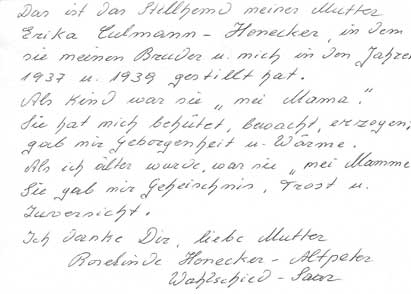 Das ist das Stillhemd meiner Mutter
Erika Culmann - Honecker, in dem
sie meinen Bruder u. mich in den Jahren
1937 u. 1939 gestillt hat.
Als Kind war sie „mei Mama".
Sie hat mich behütet, bewacht, erzogen,
gab mir Geborgenheit u. Wärme.
Als ich älter wurde, war sie „mei Mamme
Sie gab mir Geheischnis, Trost u.
Zuversicht.
Ich danke Dir, liebe Mutter
Roselinde Honecker - Altpeter
Wahlschied - Saar